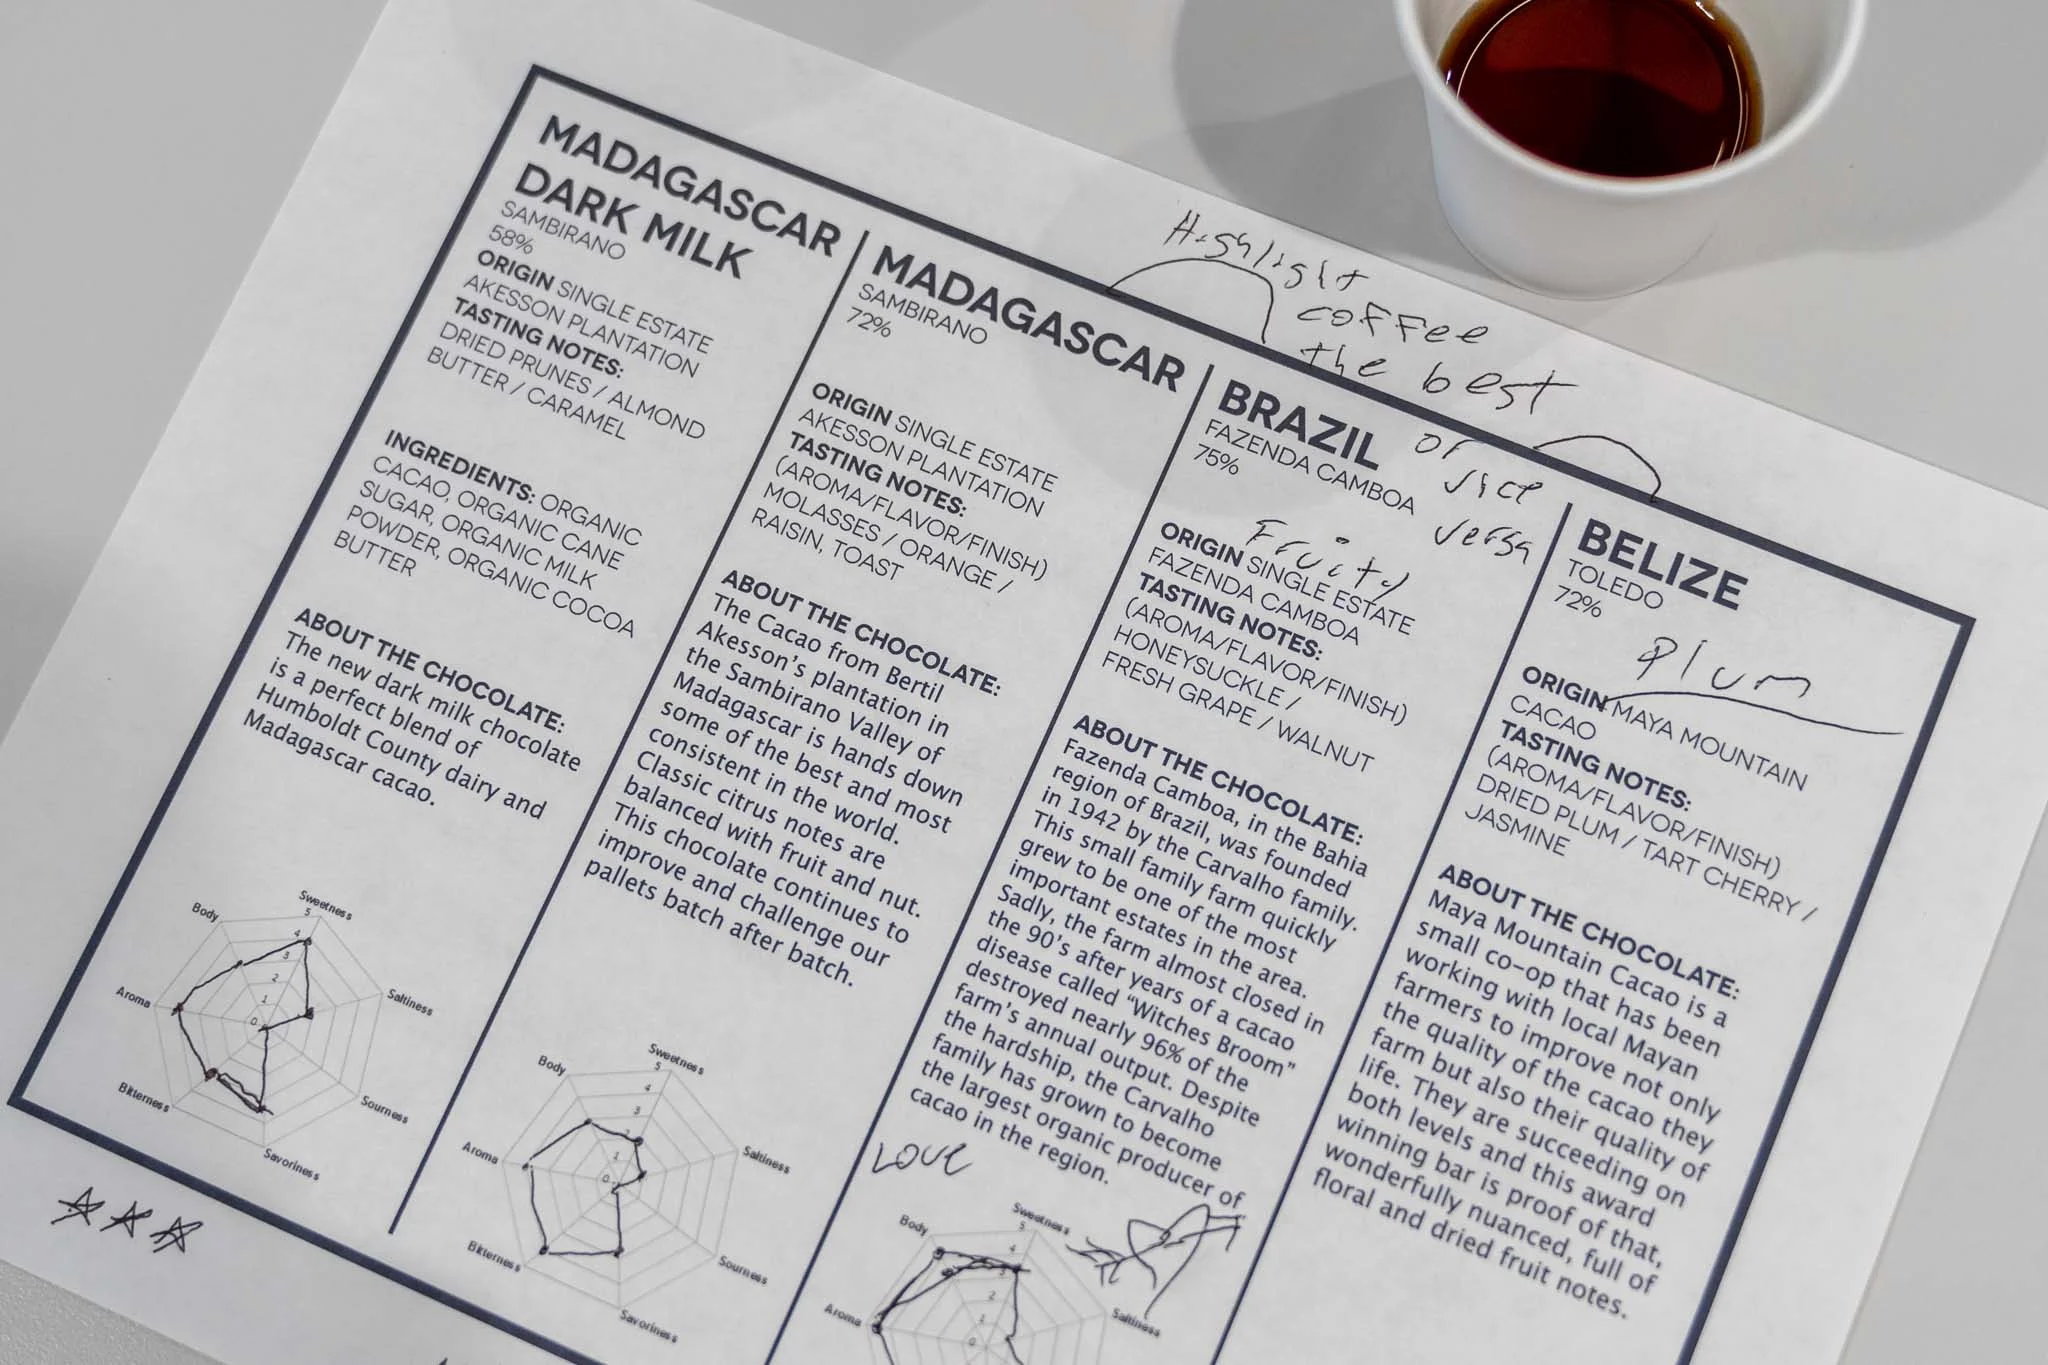 MADAGASCAR
DARK MILK
SAMBIRANO
58%
ORIGIN SINGLE ESTATE
AKESSON PLANTATION
TASTING NOTES:
DRIED PRUNES / ALMOND
BUTTER / CARAMEL
INGREDIENTS: ORGANIC
CACAO, ORGANIC CANE
SUGAR, ORGANIC MILK
POWDER, ORGANIC COCOA
BUTTER
ABOUT THE CHOCOLATE:
The new dark milk chocolate
is a perfect blend of
Humboldt County dairy and
Madagascar cacao.
Sweetness
Saltiness
Sourness
Savoriness
Bitterness
Aroma
Body
5
4
3
2
1
0
MADAGASCAR
SAMBIRANO
72%
ORIGIN SINGLE ESTATE
AKESSON PLANTATION
TASTING NOTES:
(AROMA/FLAVOR/FINISH)
MOLASSES / ORANGE /
RAISIN, TOAST
ABOUT THE CHOCOLATE:
The Cacao from Bertil
Akesson's plantation in
the Sambirano Valley of
Madagascar is hands down
some of the best and most
consistent in the world.
Classic citrus notes are
balanced with fruit and nut.
This chocolate continues to
improve and challenge our
pallets batch after batch.
Sweetness
Saltiness
Sourness
Savoriness
Bitterness
Aroma
Body
5
4
3
2
1
0
Highlight
coffee
the best
or
vice
versa
BRAZIL
FAZENDA CAMBOA
75%
Fruity
ORIGIN SINGLE ESTATE
FAZENDA CAMBOA
TASTING NOTES:
(AROMA/FLAVOR/FINISH)
HONEYSUCKLE /
FRESH GRAPE / WALNUT
ABOUT THE CHOCOLATE:
Fazenda Camboa, in the Bahia
region of Brazil, was founded
in 1942 by the Carvalho family.
This small family farm quickly
grew to be one of the most
important estates in the area.
Sadly, the farm almost closed in
the 90's after years of a cacao
disease called "Witches Broom"
destroyed nearly 96% of the
farm's annual output. Despite
the hardship, the Carvalho
family has grown to become
the largest organic producer of
cacao in the region.
LOVE
Sweetness
Saltiness
Aroma
Body
5
4
3
2
1
0
BELIZE
TOLEDO
72%
Plum
ORIGIN MAYA MOUNTAIN
CACAO
TASTING NOTES:
(AROMA/FLAVOR/FINISH)
DRIED PLUM / TART CHERRY /
JASMINE
ABOUT THE CHOCOLATE:
Maya Mountain Cacao is a
small co-op that has been
working with local Mayan
farmers to improve not only
the quality of the cacao they
farm but also their quality of
life. They are succeeding on
both levels and this award
winning bar is proof of that,
wonderfully nuanced, full of
floral and dried fruit notes.